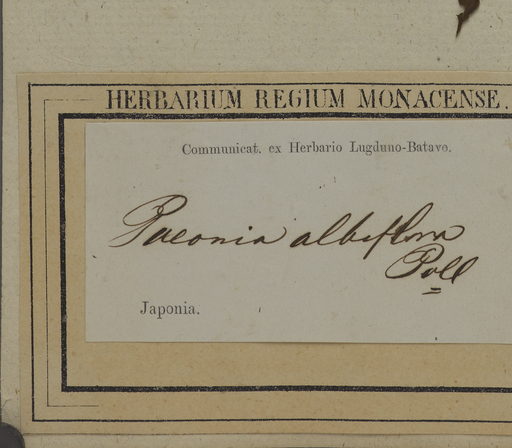 HERBARIUM REGIUM MONACENSE.
Communicat. ex Herbario Lugduno-Batavo.
Paeonia albiflora
Pall
Japonia.